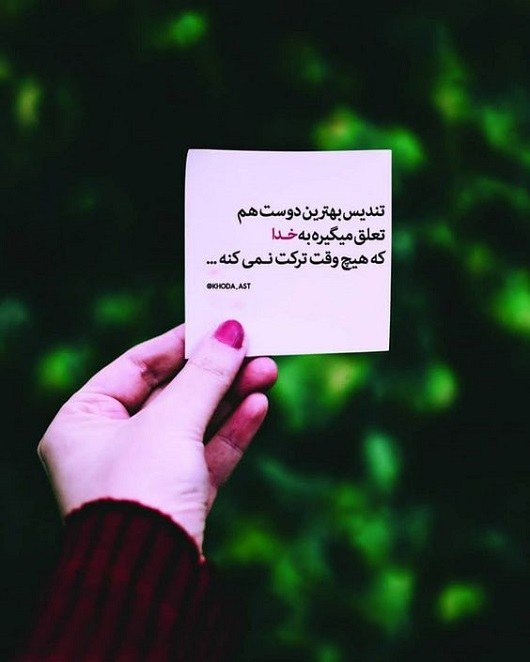 تندیس بهترین دوست هم
تعلق میگیره به خدا
که هیچ وقت ترکت نمی کنه ...
@KHODA_AST